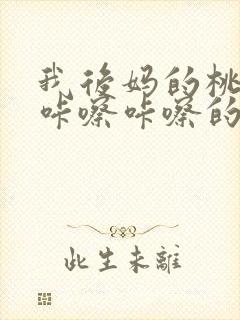 我后妈的桃
咔嚓咔嚓的
此生未離